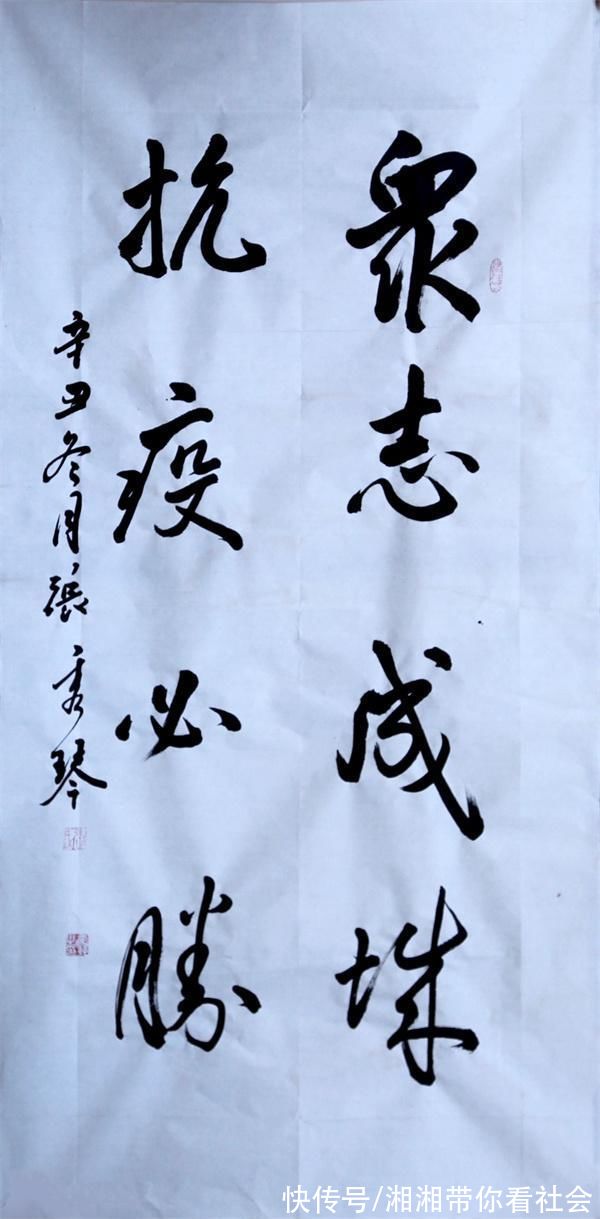 眾志成城
抗疫必勝
辛丑冬月張秀琴
快传号/湘湘带你看社会